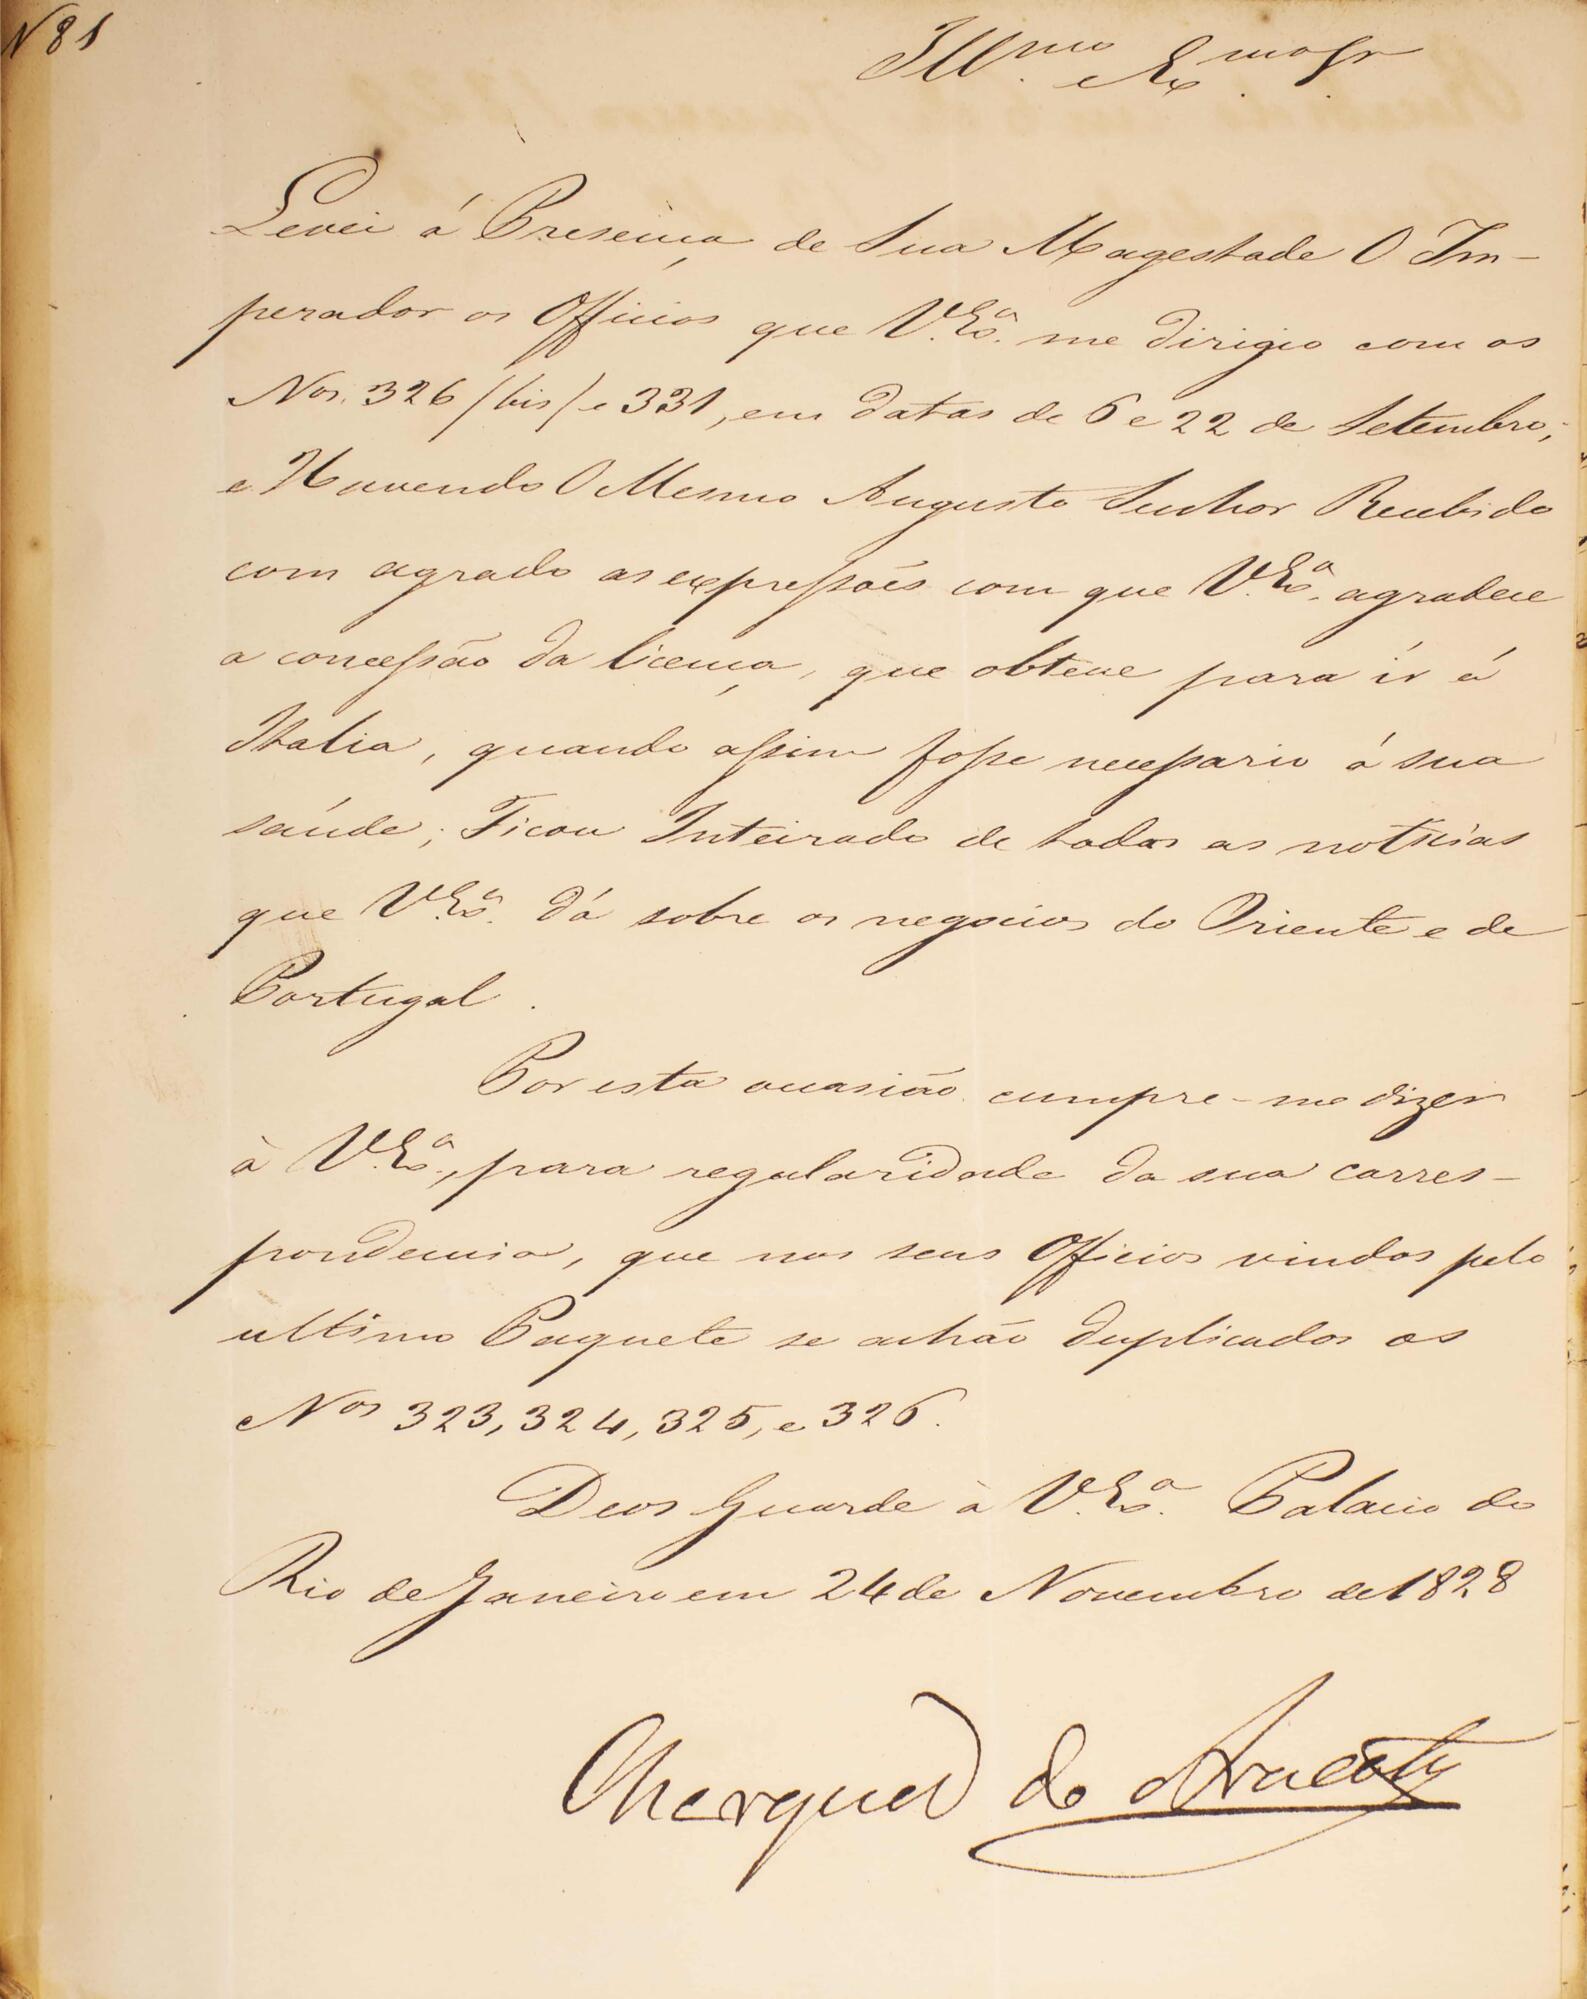 N 81
Ill.mo e Ex.mo Sr
Levei á Presença de Sua Magestade O Im-
perador os Officios que V. Ex.a me dirigio com os
Nos. 326 /bis/ e 331, em datas de 6 e 22 de Setembro;
e Havendo O Mesmo Augusto Senhor Recebido
com agrado as expressões com que V. Ex.a agradece
a concessão da licença, que obteve para ír á
Italia, quando assim fosse necessario á sua
saúde; Ficou Inteirado de todas as noticias
que V. Ex.a dá sobre os negocios do Oriente e de
Portugal.
Por esta occasião cumpre-me dizer
à V. Ex.a, para regularidade da sua corres-
pondencia, que nos seus Officios vindos pelo
ultimo Paquete se achão duplicados os
Nos 323, 324, 325, e 326.
Deos Guarde à V. Ex.a Palacio do
Rio de Janeiro em 24 de Novembro de 1828
Marquez do Aracaty